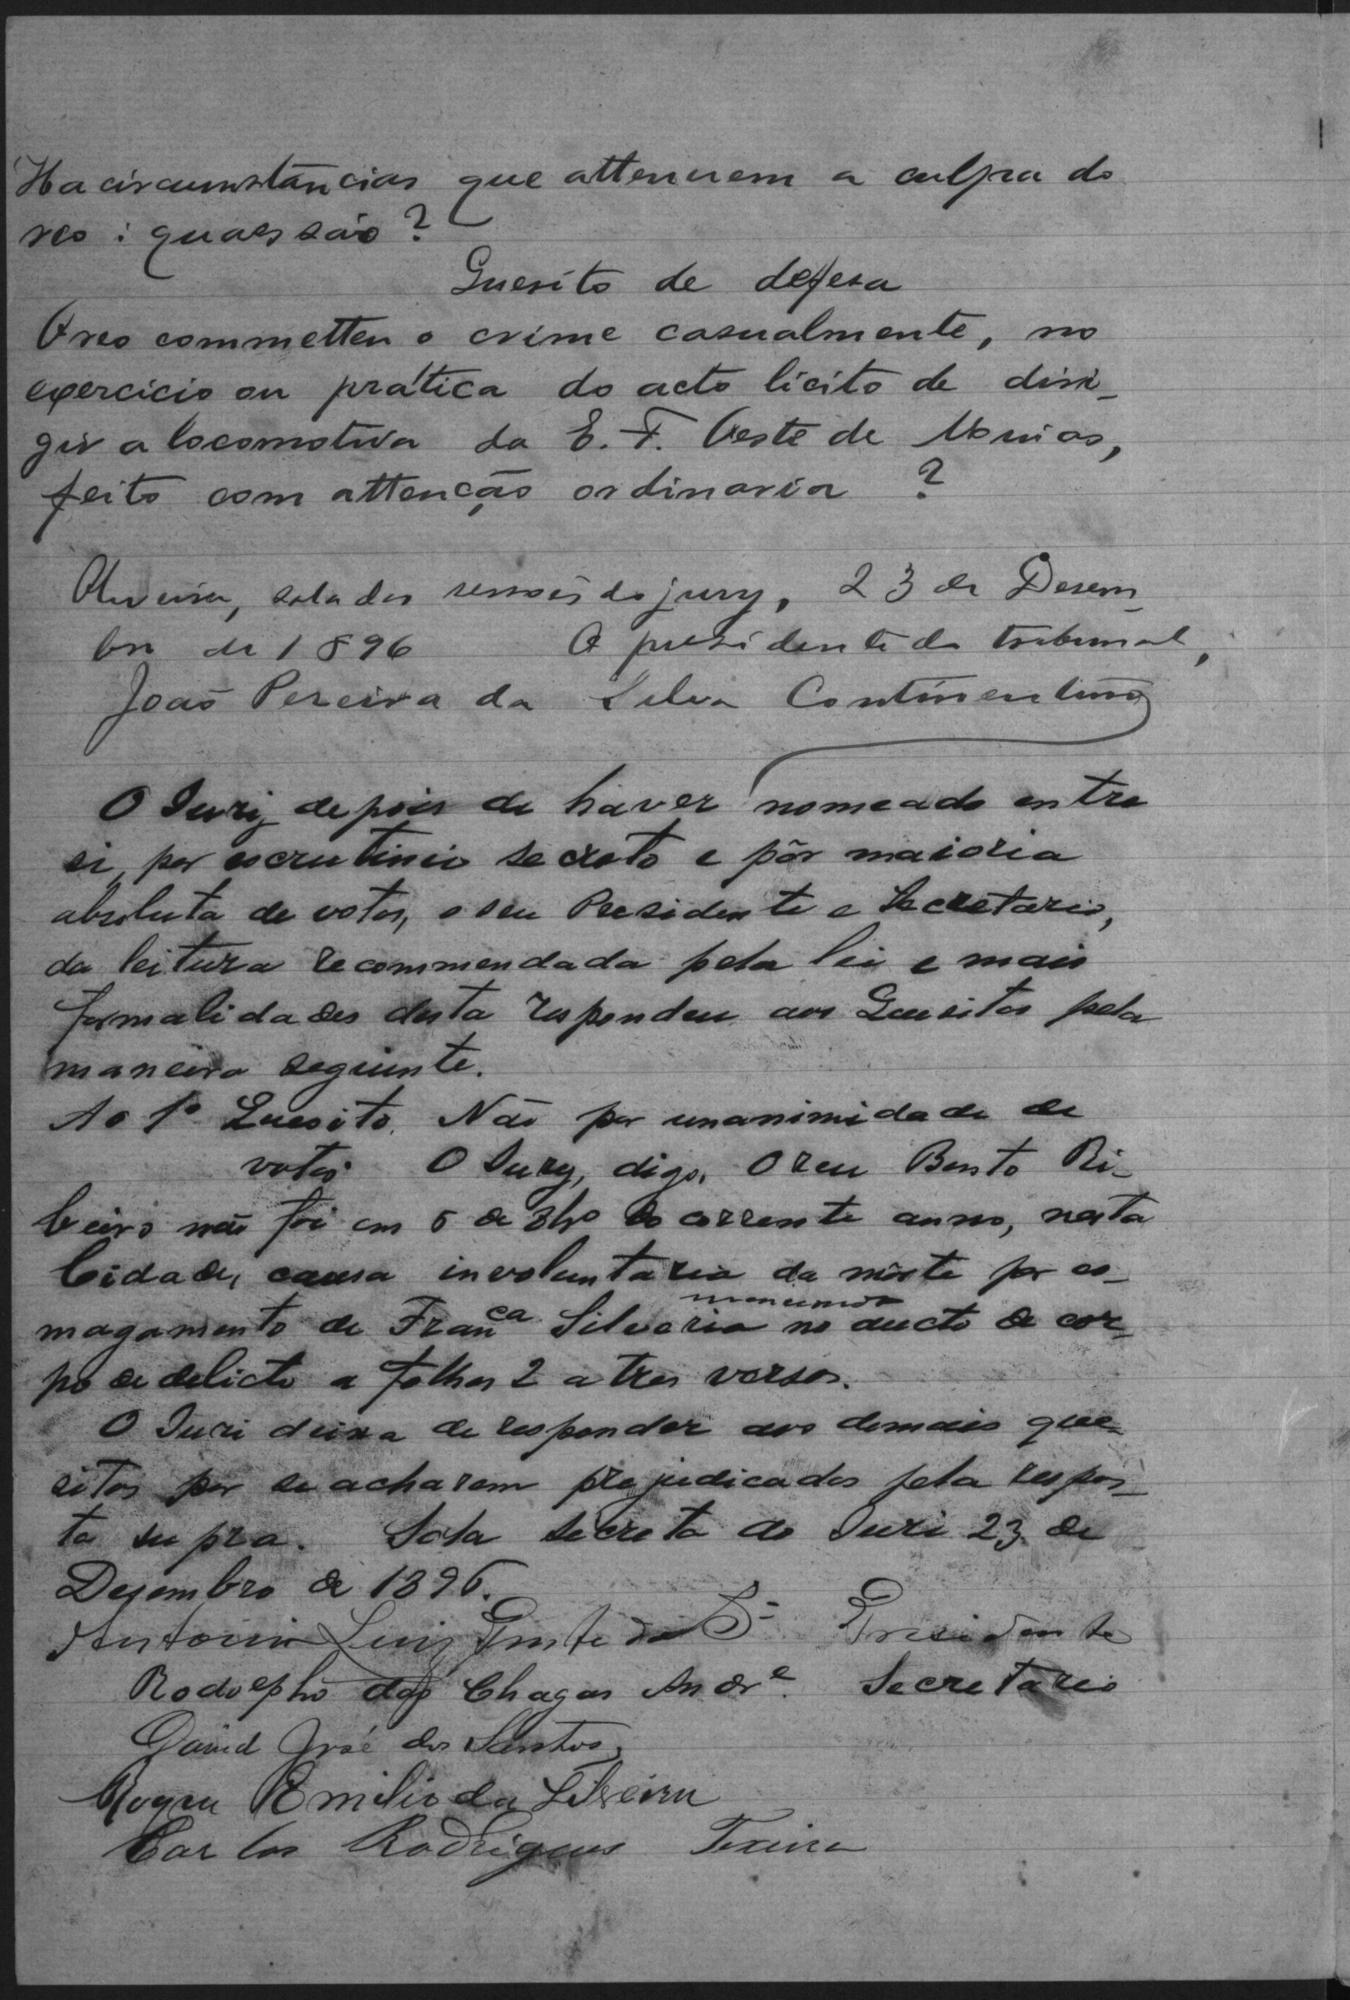 Ha circumstãncias que attenuem a culpa do
reo: quaes são?
Quesito de defesa
O reo commetteu o crime casualmente, no
exercicio ou prática do acto licito de diri-
gir a locomotiva da E. F. Oeste de Minas,
feito com attenção ordinaria?
Oliveira, sala das sessões do jury, 23 de Desem-
bro de 1896 O presidente do tribunal,
João Pereira da Silva Continentino
O Jury, depois de haver nomeado entre
si, por escrutinio secreto e pôr maioria
absoluta de votos, o seu Presidente e Secretario,
da leitura recommendada pela lei e mais
formalidades desta respondeu aos Quesitos pela
maneira seguinte.
Ao 1º Quesito. Não por unanimidade de
votos. O Jury, digo, O reu Bento Ri-
beiro não foi em 5 de 8bro do corrente anno, nesta
Cidade, causa involuntaria da môrte por es-
magamento de Franca Silveria no aucto de cor-
po de delicto a folhas 2 a tres versos.
O Juri deixa de responder aos demais que-
sitos por se acharem prejudicados pela respos-
ta supra. Sala secreta do Juri 23 de
Dezembro de 1896.
Antonio Luiz da Sª Presidente
Rodolpho das Chagas Andre. Secretario
David José dos Santos,
Emilio da Silveira
Carlos Rodrigues Texeira